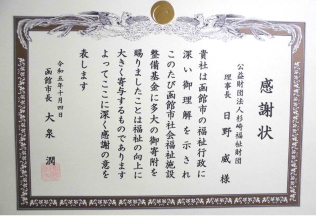 感謝状
公益財団法人杉崎福祉財団
理事長 日野 威 様
貴社は函館市の福祉行政に
深い御理解を示され
このたび函館市社会福祉施設
整備基金に多大の御寄附を
賜りましたことは福祉の向上に
大きく寄与するものであります
よってここに深く感謝の意を
表します
令和五年十月四日
函館市長 大泉 潤